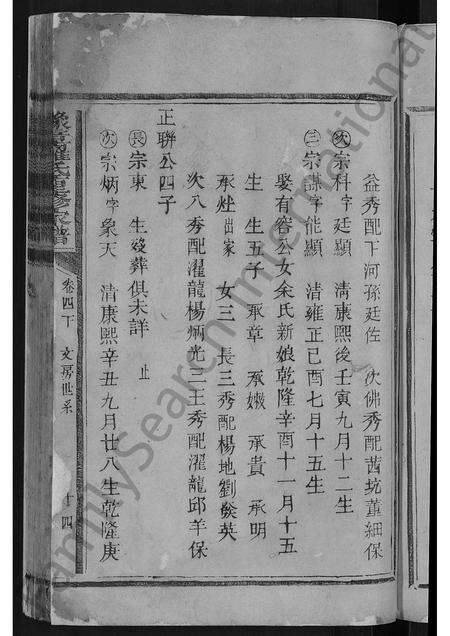 益秀配下河孫廷佐 次佛秀配茜坑董細保
次宗科字廷顯 清康熙後壬寅九月十二生
三宗謀字能顯 清雍正己酉七月十五生
娶有容公女余氏新娘乾隆辛酉十一月十五
生 生五子 承章 承嫩 承貴 承明
承灶出家 女三 長三秀配楊地劉癸英
次八秀配濯龍楊炳光二王秀配濯龍邱羊保
正聯公四子
長宗東 生歿葬俱未詳 止
次宗炳字象天 清康熙辛丑九月廿八生乾隆庚
羅氏重修家譜 卷四下 文房世系 十四
FamilySearch International